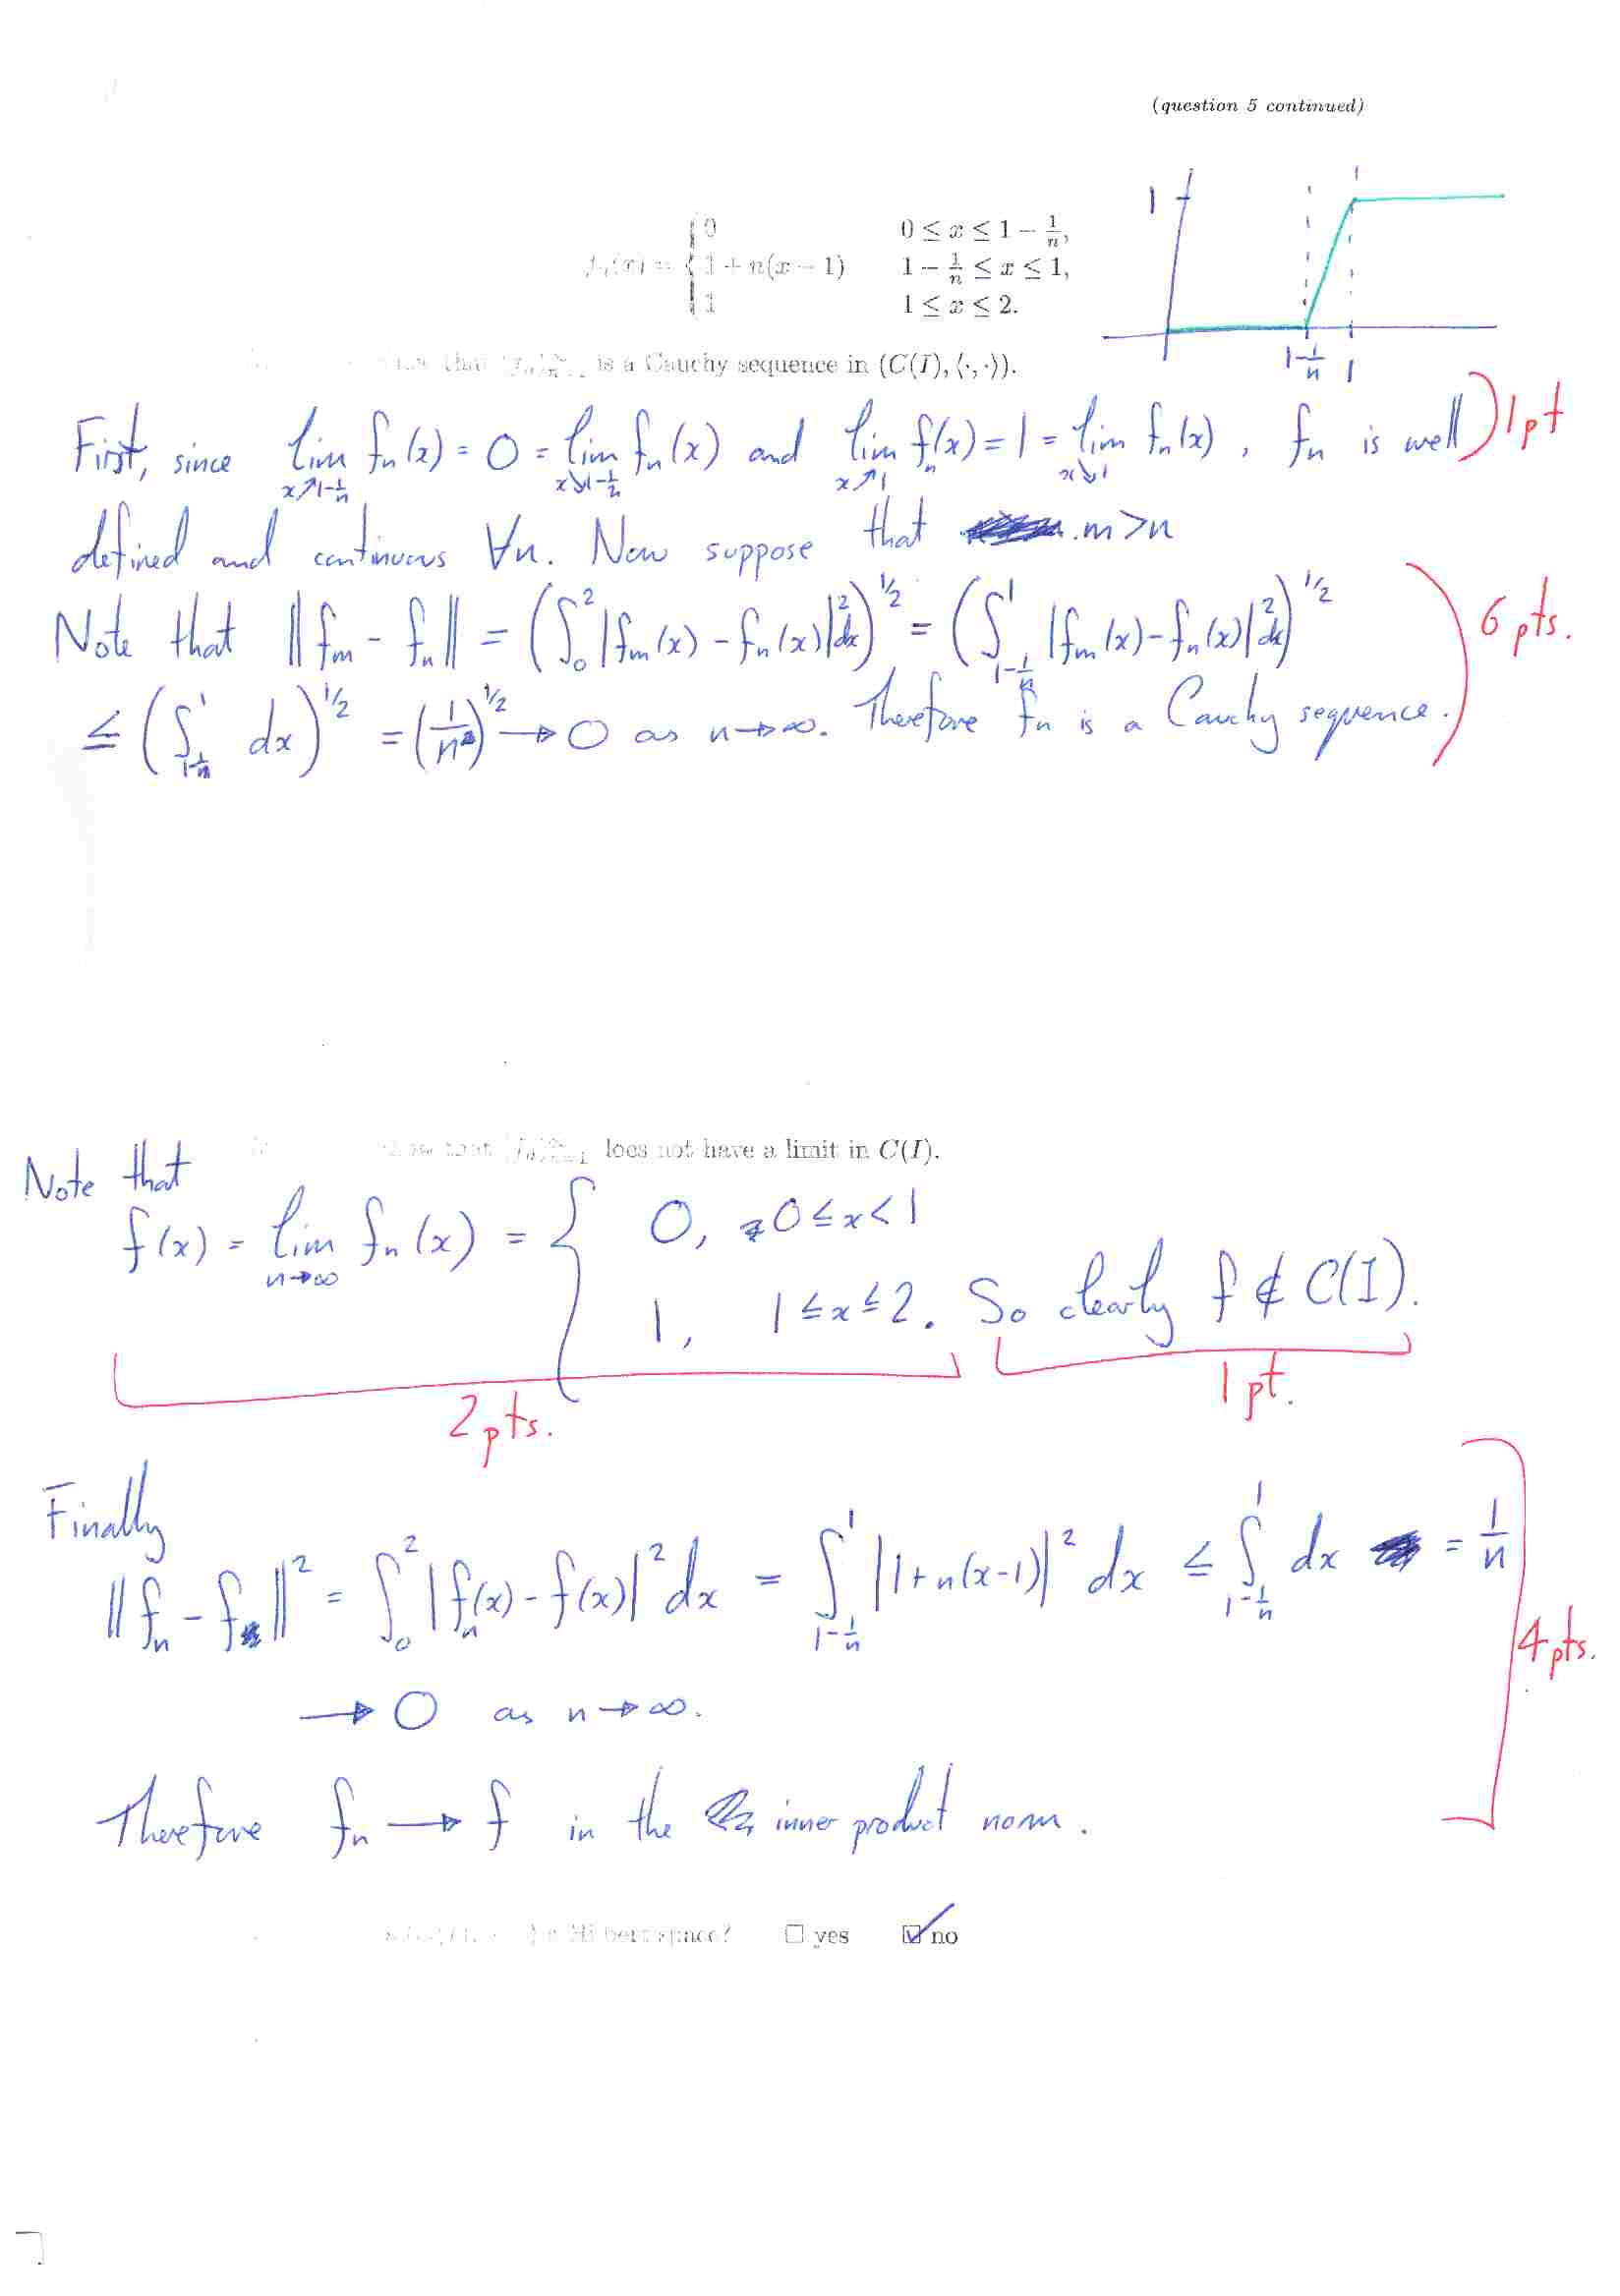 (question 5 continued)
1
f_n(x) = { 0    0 ≤ x ≤ 1 − 1/n,
1 + n(x − 1)    1 − 1/n ≤ x ≤ 1,
1    1 ≤ x ≤ 2.
1-1/n 1
that is a Cauchy sequence in (C(I), ⟨·, ·⟩).
First, since lim_{x↗1-1/n} f_n(x) = 0 = lim_{x↘1-1/n} f_n(x) and lim_{x↗1} f_n(x) = 1 = lim_{x↘1} f_n(x), f_n is well ) 1pt
defined and continuous ∀n. Now suppose that m>n
Note that ‖f_m - f_n‖ = (∫_0^2 |f_m(x) - f_n(x)|^2 dx)^{1/2} = (∫_{1-1/n}^1 |f_m(x) - f_n(x)|^2 dx)^{1/2} 6 pts.
≤ (∫_{1-1/n}^1 dx)^{1/2} = (1/n)^{1/2} → 0 as n→∞. Therefore f_n is a Cauchy sequence.
show that does not have a limit in C(I).
Note that
f(x) = lim_{n→∞} f_n(x) = { 0, 0≤x<1
1, 1≤x≤2. So clearly f ∉ C(I).
2 pts. 1 pt.
Finally
‖f_n - f‖^2 = ∫_0^2 |f_n(x) - f(x)|^2 dx = ∫_{1-1/n}^1 |1+n(x-1)|^2 dx ≤ ∫_{1-1/n}^1 dx = 1/n
4 pts.
→ 0 as n→∞.
Therefore f_n → f in the inner product norm.
Hilbert space? ☐ yes ☑ no